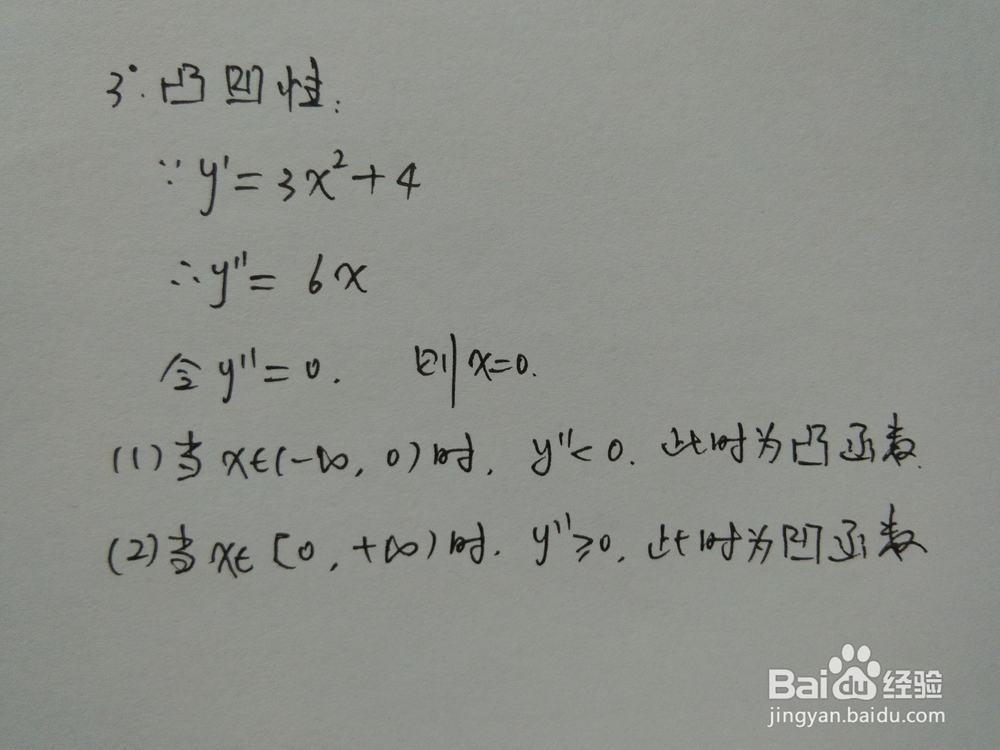 3°. 凸凹性:
∵ y' = 3x²+4
∴ y'' = 6x
令 y'' = 0. 则 x=0.
(1) 当 x∈(-∞, 0) 时, y''<0. 此时为凸函数.
(2) 当 x∈ [0, +∞) 时. y''≥0, 此时为凹函数
Baidu 经验
jingyan.baidu.com